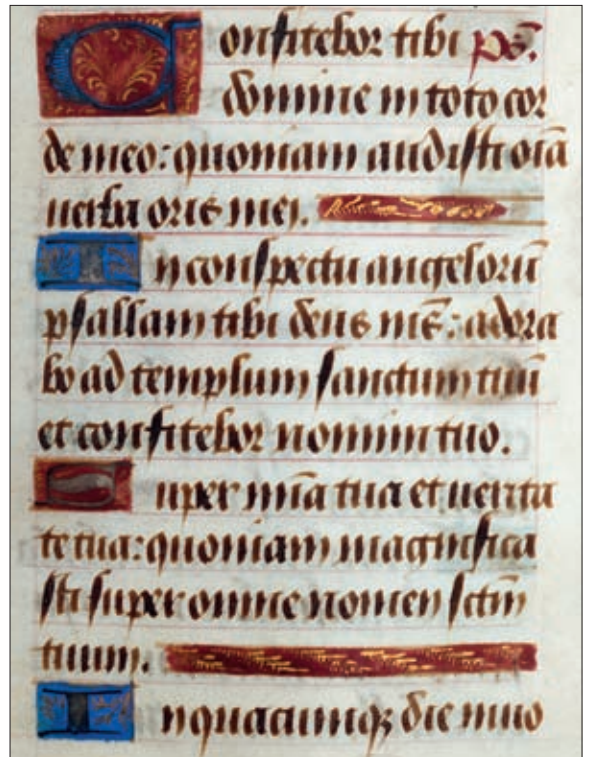 Confitebor tibi ps̄.
domine in toto cor
de meo: quoniam audisti oīa
uerba oris mei.
In conspectu angelorū
psallam tibi deus mēꝰ: adora
bo ad templum sanctum tuū
et confitebor nomini tuo.
Super mīa tua et uerita
te tua: quoniam magnifica
sti super omne nomen sctm̄
tuum.
In quacumqꝫ die inuo